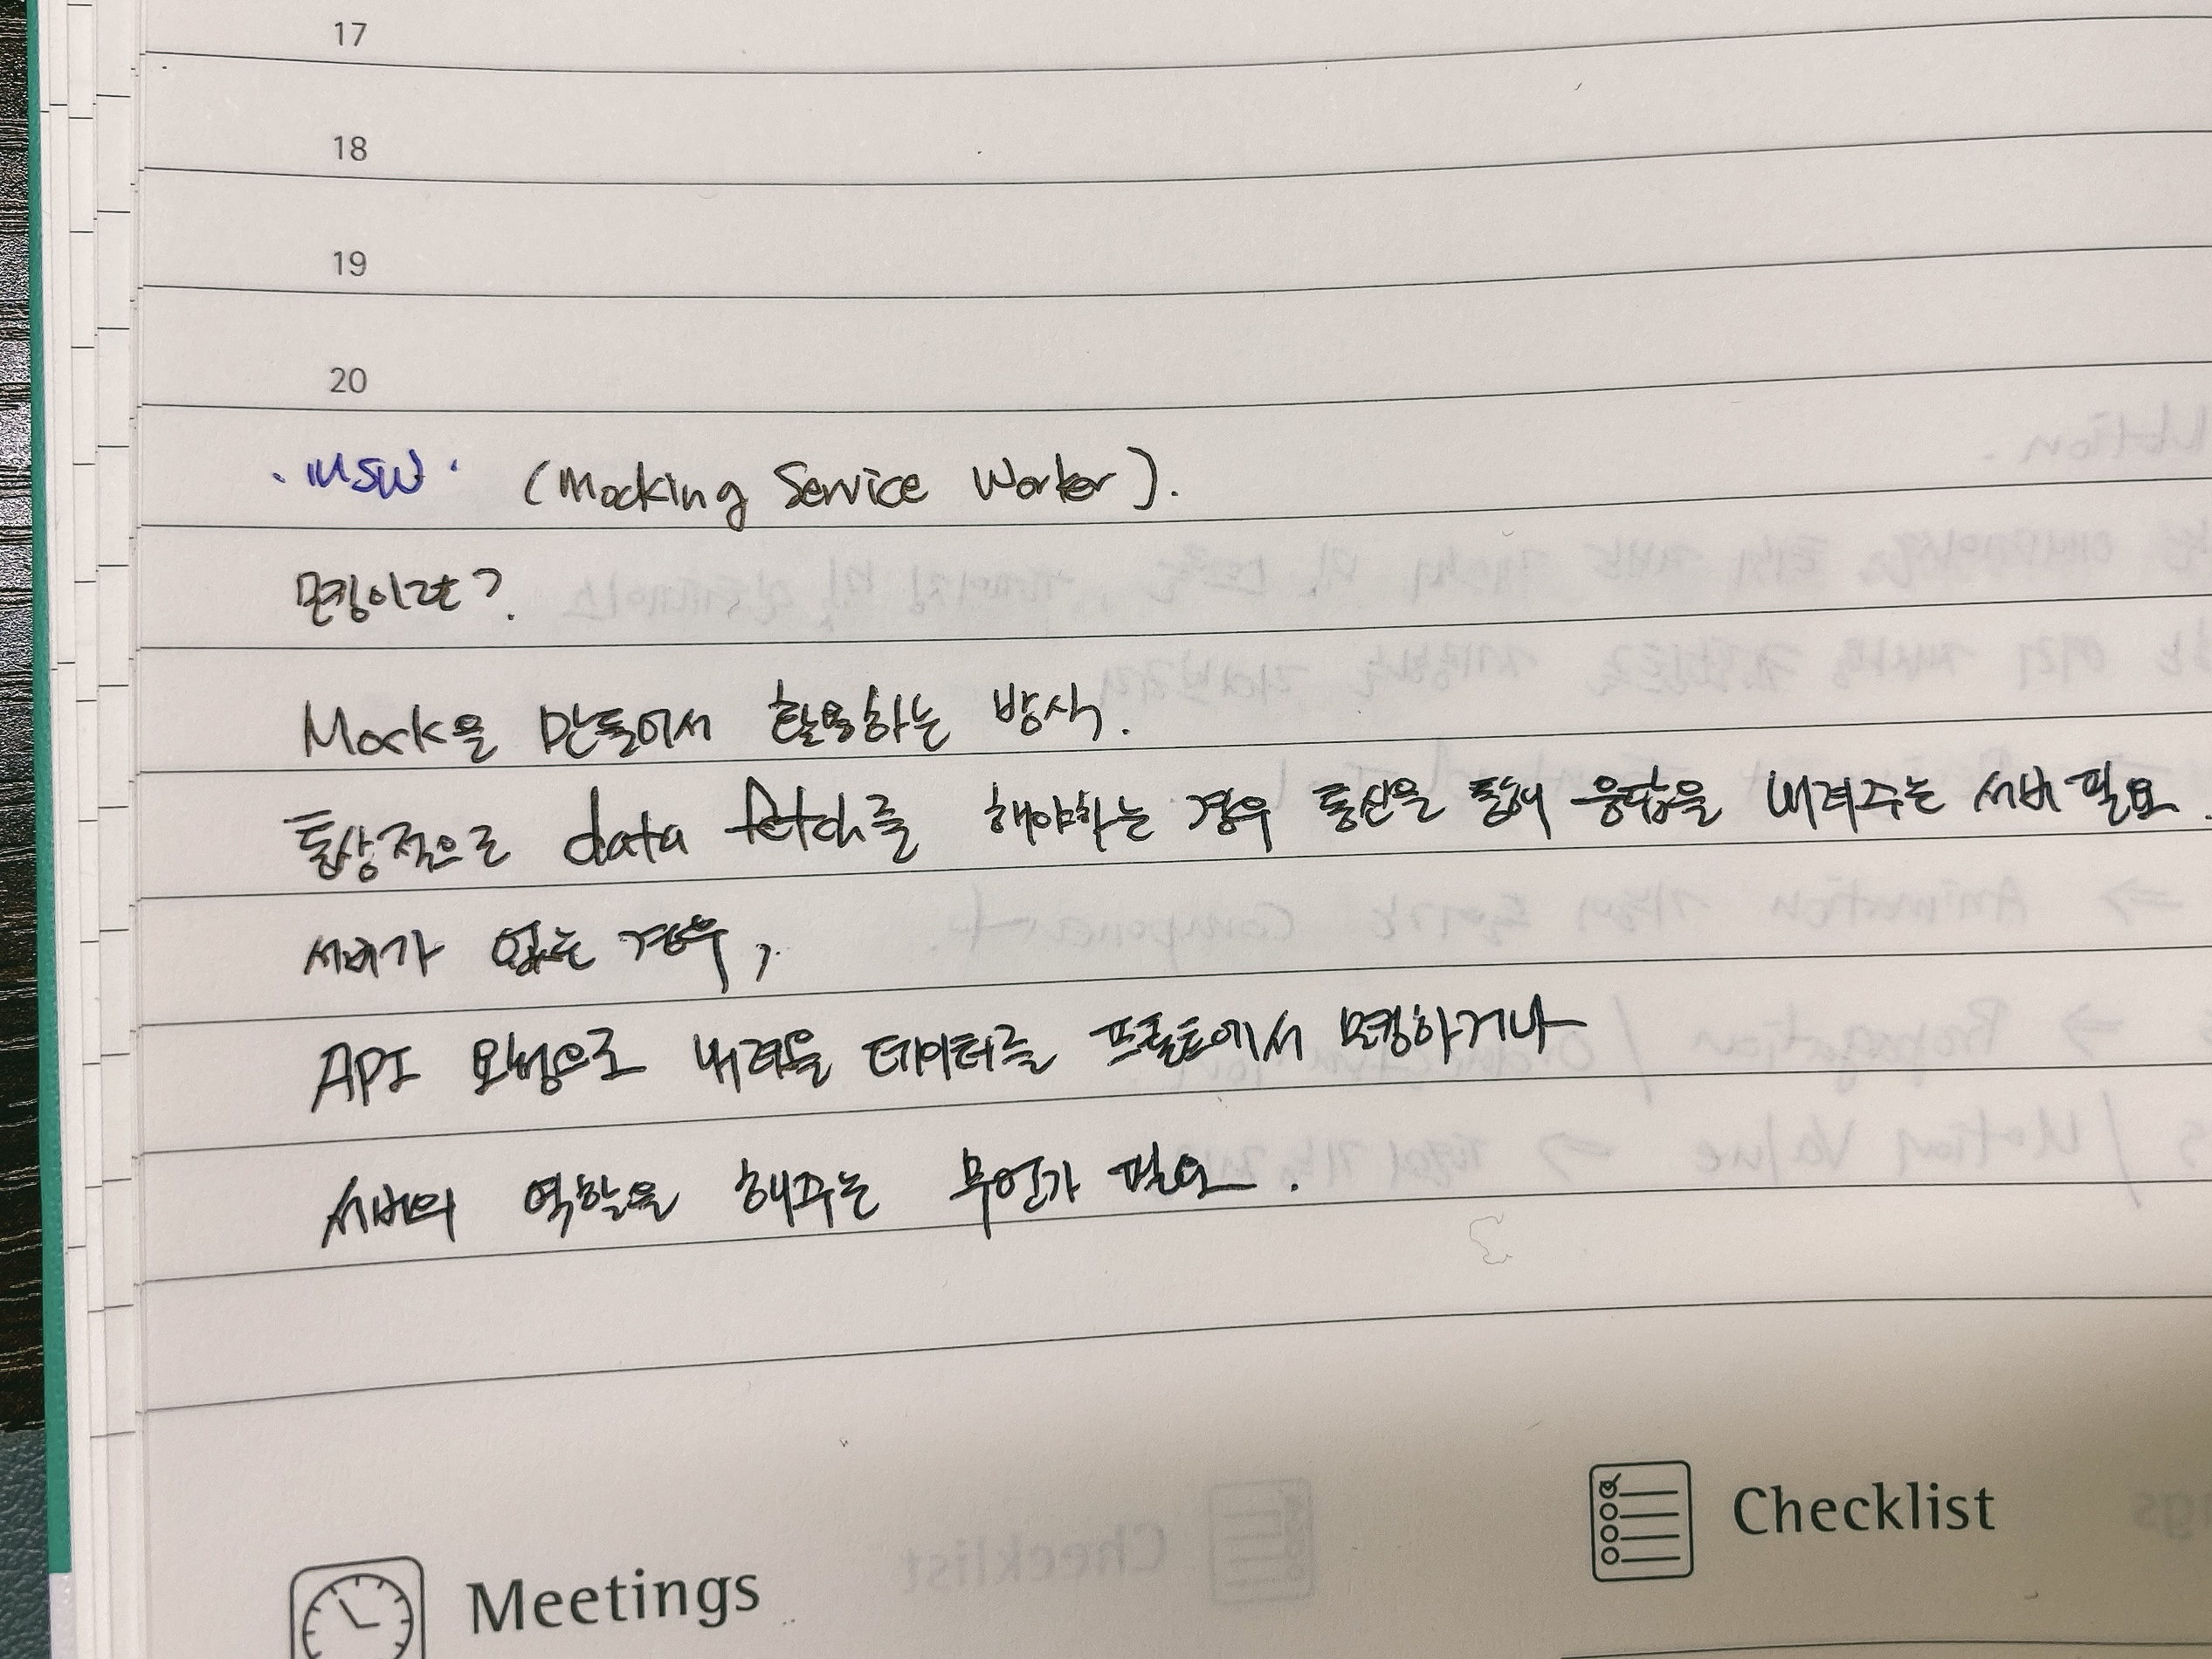 17
18
19
20
· MSW · (Mocking Service Worker).
모킹이란?
Mock을 만들어서 활용하는 방식.
통상적으로 data fetch를 해야하는 경우 통신을 통해 응답을 내려주는 서버 필요.
서버가 없는 경우,
API 요청으로 내려올 데이터를 프론트에서 모킹하거나
서버의 역할을 해주는 무언가 필요.
Checklist
Meetings